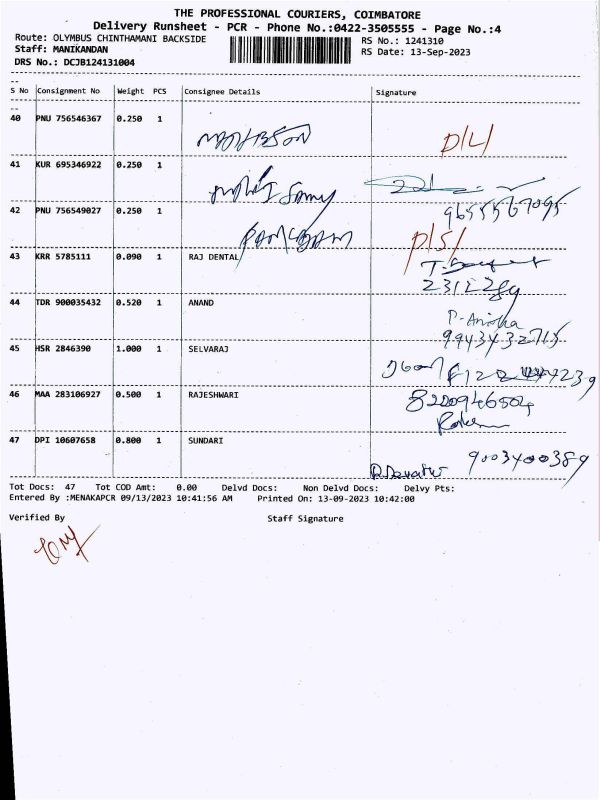 THE PROFESSIONAL COURIERS, COIMBATORE
Delivery Runsheet - PCR - Phone No.:0422-3505555 - Page No.:4
Route: OLYMBUS CHINTHAMANI BACKSIDE RS No.: 1241310
Staff: MANIKANDAN RS Date: 13-Sep-2023
DRS No.: DCJB124131004
S No Consignment No Weight PCS Consignee Details Signature
40 PNU 756546367 0.250 1
41 KUR 695346922 0.250 1
42 PNU 756549027 0.250 1
9655567095
43 KRR 5785111 0.090 1 RAJ DENTAL
44 TDR 900035432 0.520 1 ANAND
P. Anisha
9943432715
45 HSR 2846390 1.000 1 SELVARAJ
46 MAA 283106927 0.500 1 RAJESHWARI
8220946504
47 DPI 10607658 0.800 1 SUNDARI
9003400389
Tot Docs: 47 Tot COD Amt: 0.00 Delvd Docs: Non Delvd Docs: Delvy Pts:
Entered By :MENAKAPCR 09/13/2023 10:41:56 AM Printed On: 13-09-2023 10:42:00
Verified By Staff Signature